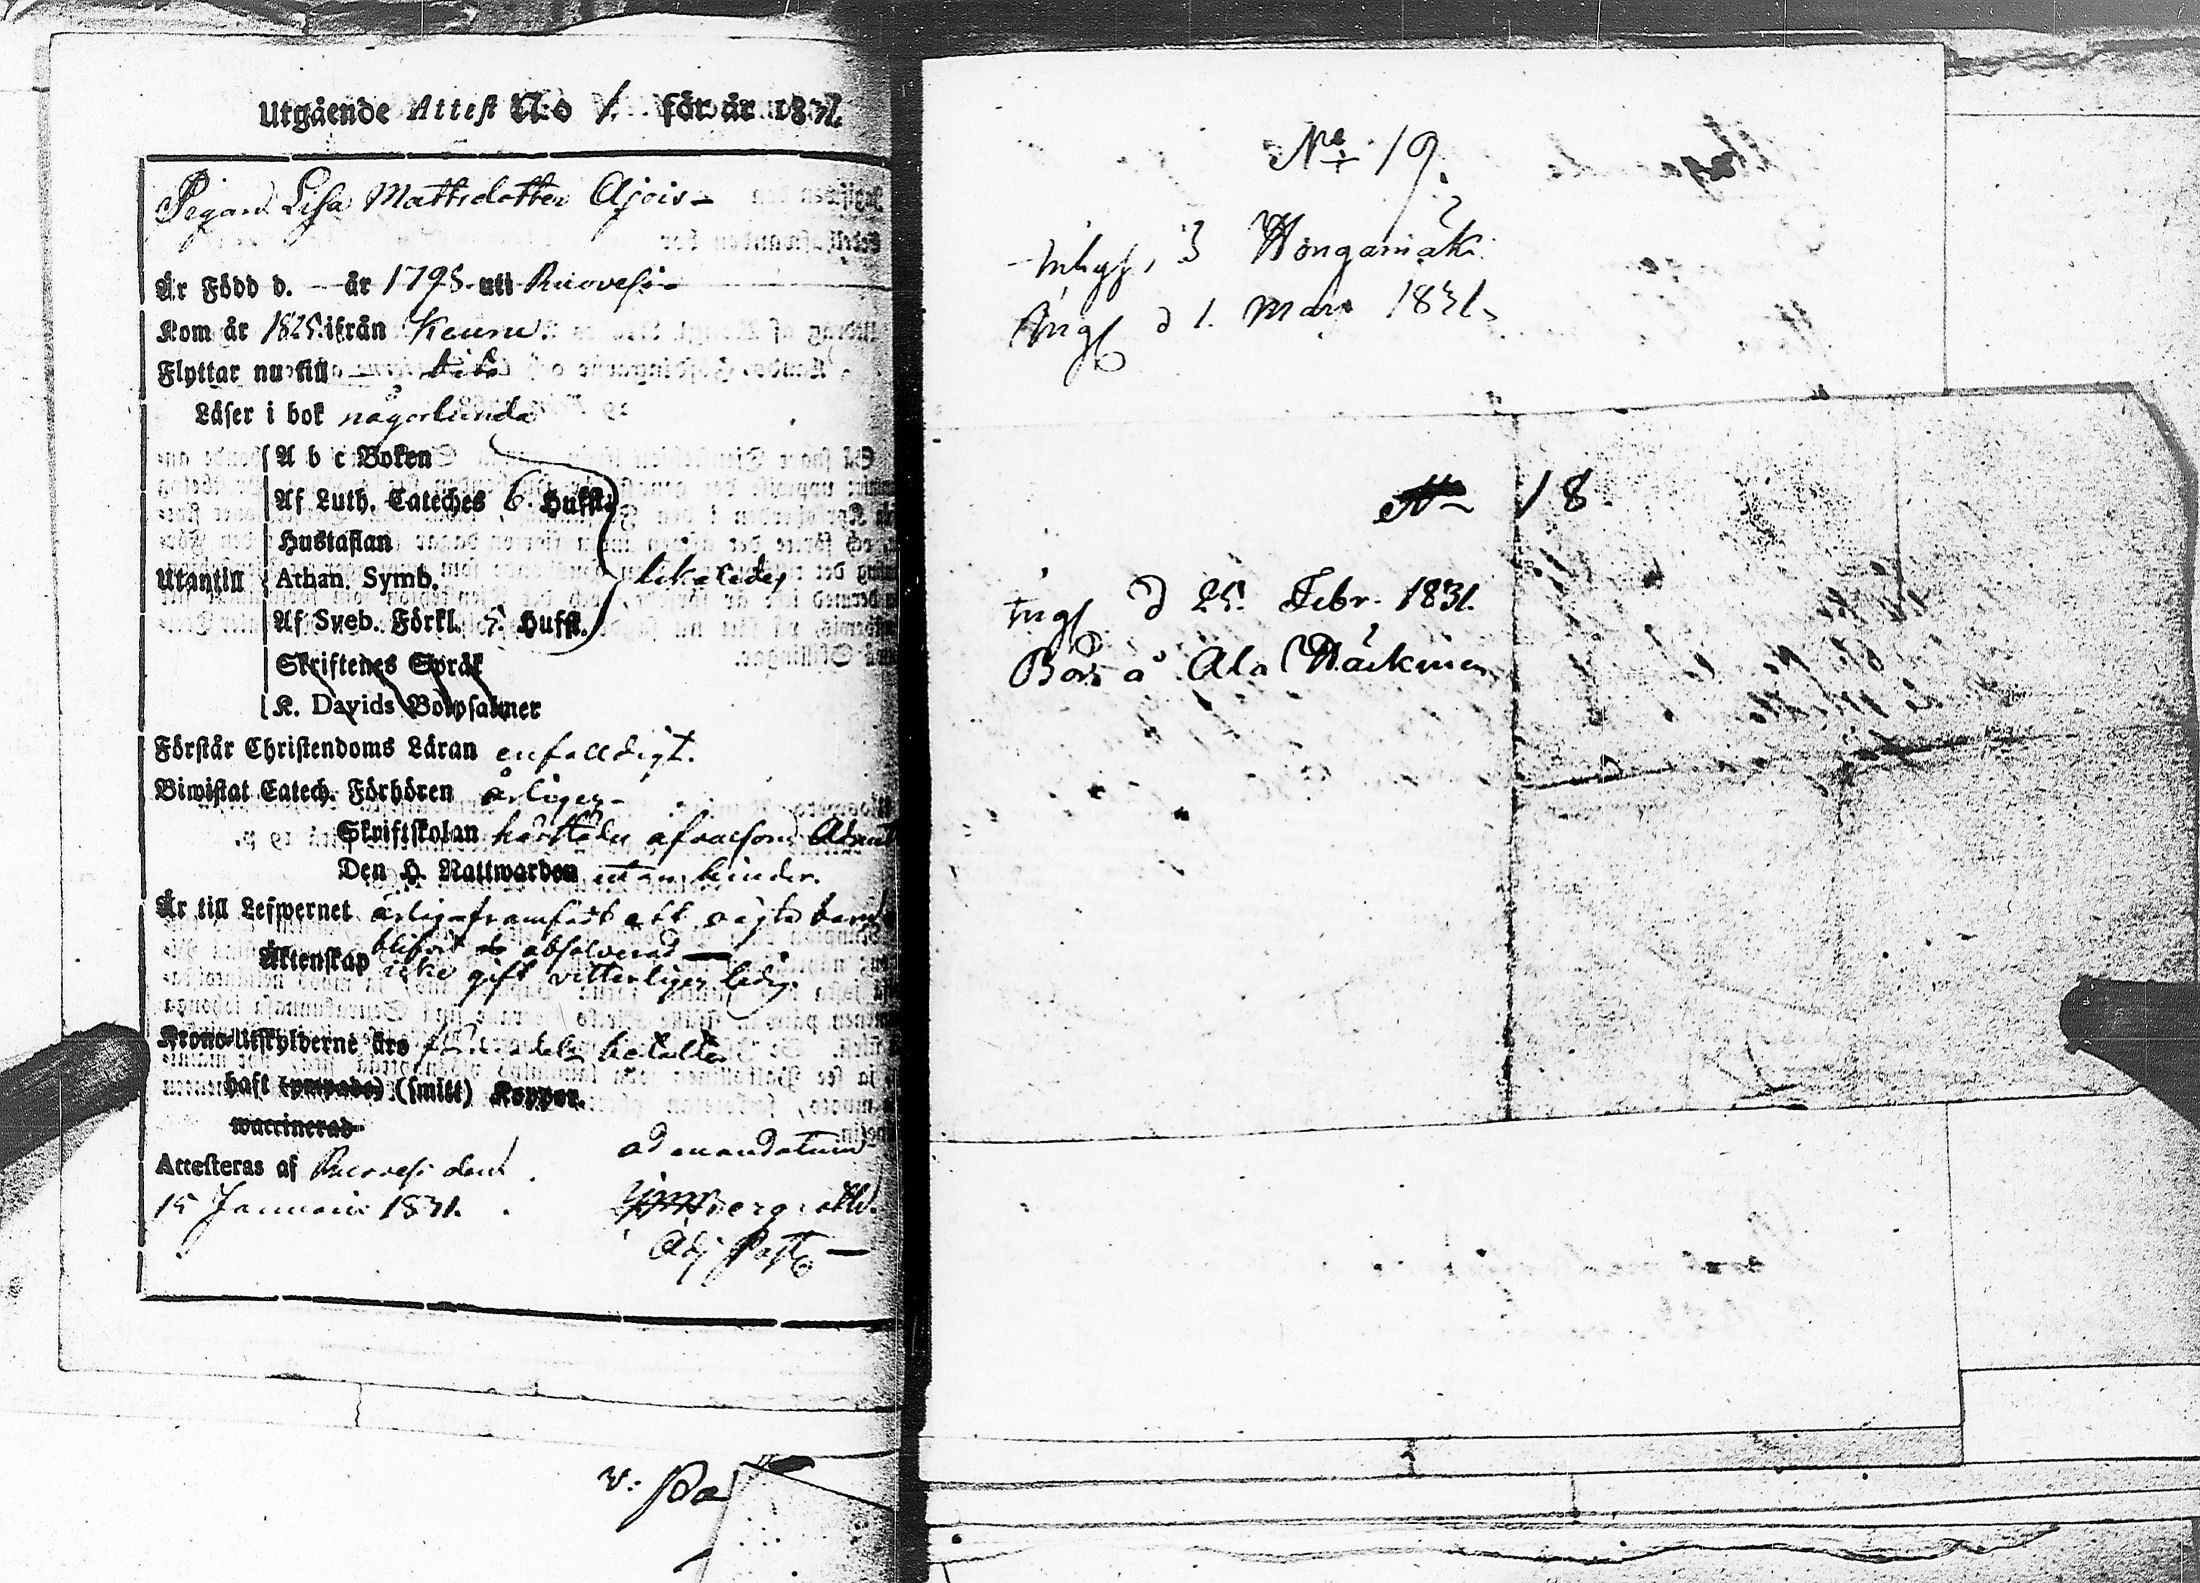 Utgående Attest N:o 1. för år 1831.
Pigan Lisa Mattsdotter Ajois
År Född d. — år 1795 uti Ruovesi
Kom år 1825 ifrån Keuru.
Flyttar nu till
Läser i bok någorlunda
A b c Boken
Af Luth. Cateches 6. Hufst.
Hustaflan
Utantill Athan. Symb. likaledes
Af Sveb. Förkl. 5. Hufst.
Skriftenes Språk
K. Davids Botpsalmer
Förstår Christendoms Läran enfaldigt.
Biwistat Catech. Förhören årligen
Skriftskolan härstädes
Den H. Nattwarden utan hinder.
Är till Lefwernet ärlig
blifvit absolverad —
Äktenskap icke gift vitterligen ledig.
Krono-Utskylderne års betalta
haft (ympade) (smitt) Koppor.
waccinerad
ad mandatum
Attesteras af Ruovesi den
15 Januarii 1831.
Adj Past —
v. Pa
No 19.
3 Hongamäki
Ing d 1. Mars 1831.
No 18.
Ing d 25. Febr. 1831.
Bor å Ala